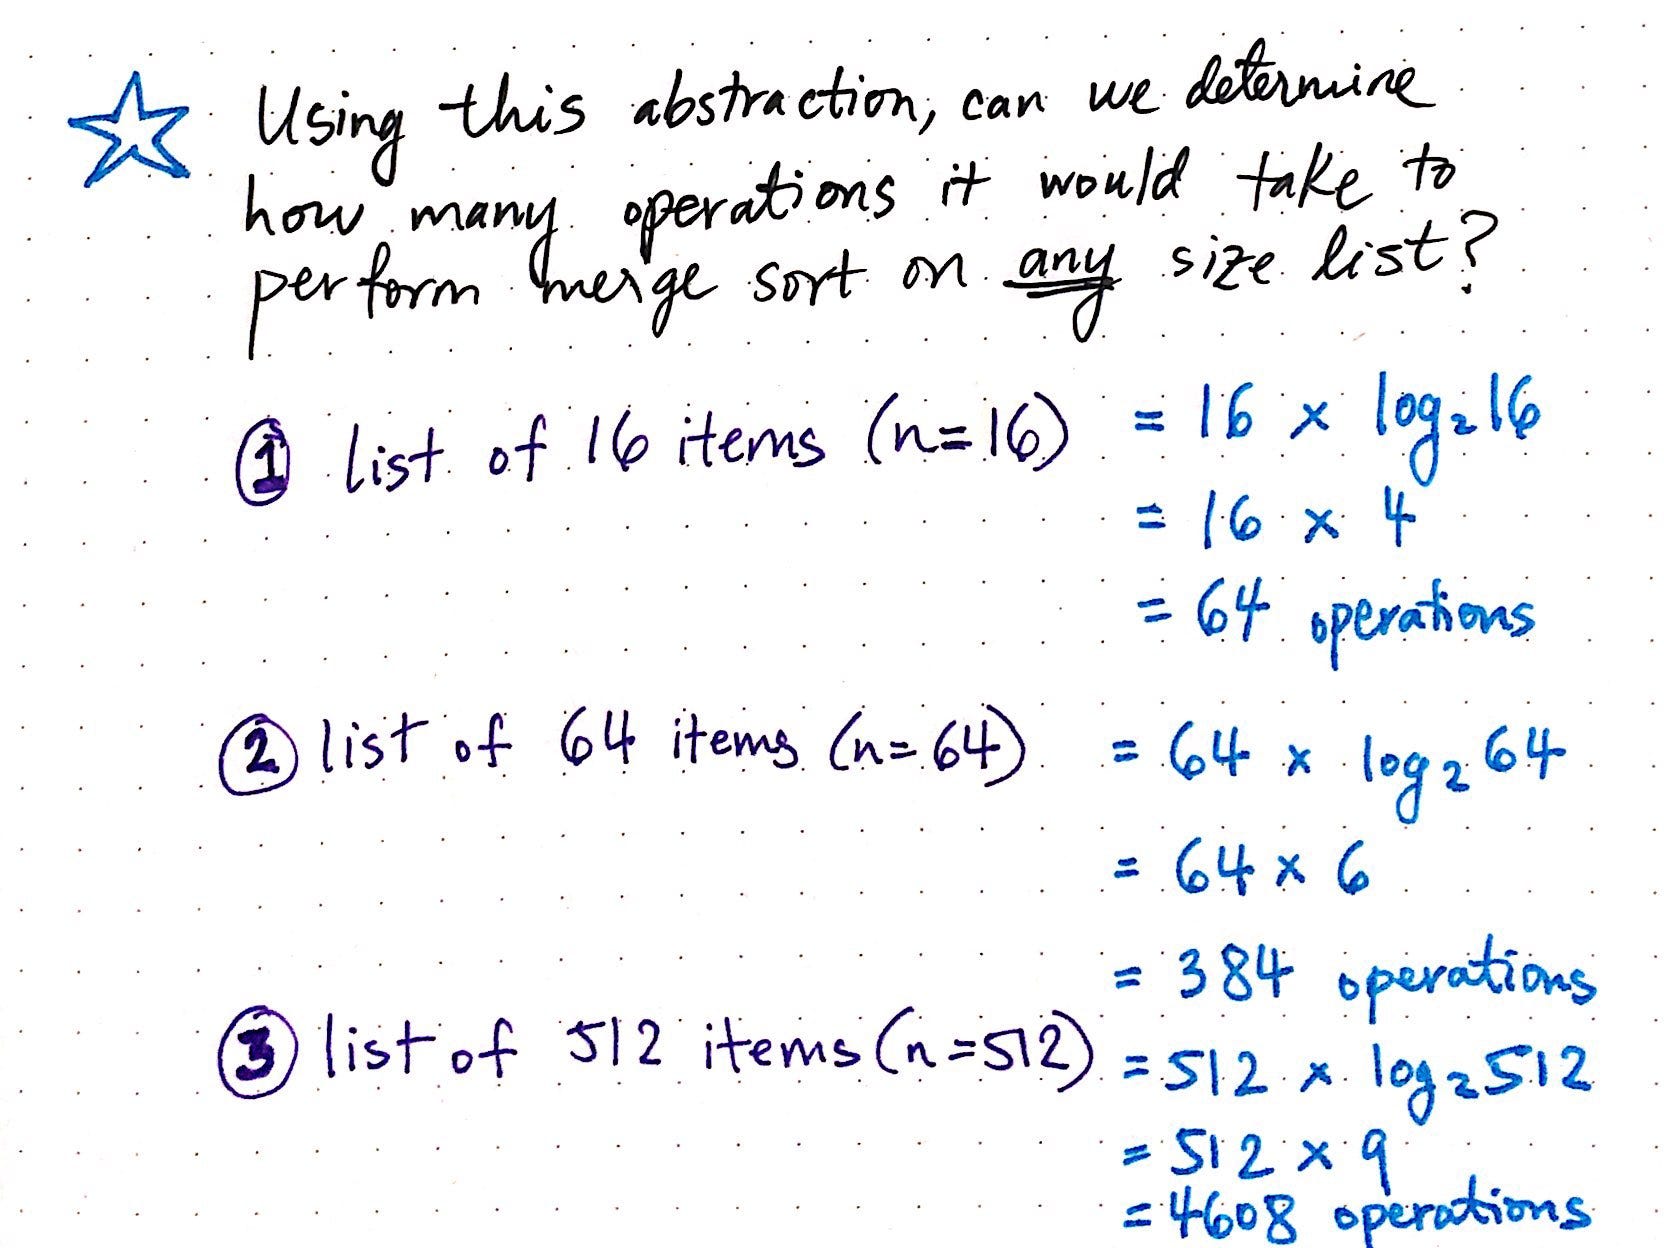 Using this abstraction, can we determine
how many operations it would take to
perform merge sort on any size list?
① list of 16 items (n=16) = 16 × log₂16
= 16 × 4
= 64 operations
② list of 64 items (n=64) = 64 × log₂64
= 64 × 6
= 384 operations
③ list of 512 items (n=512) = 512 × log₂512
= 512 × 9
= 4608 operations